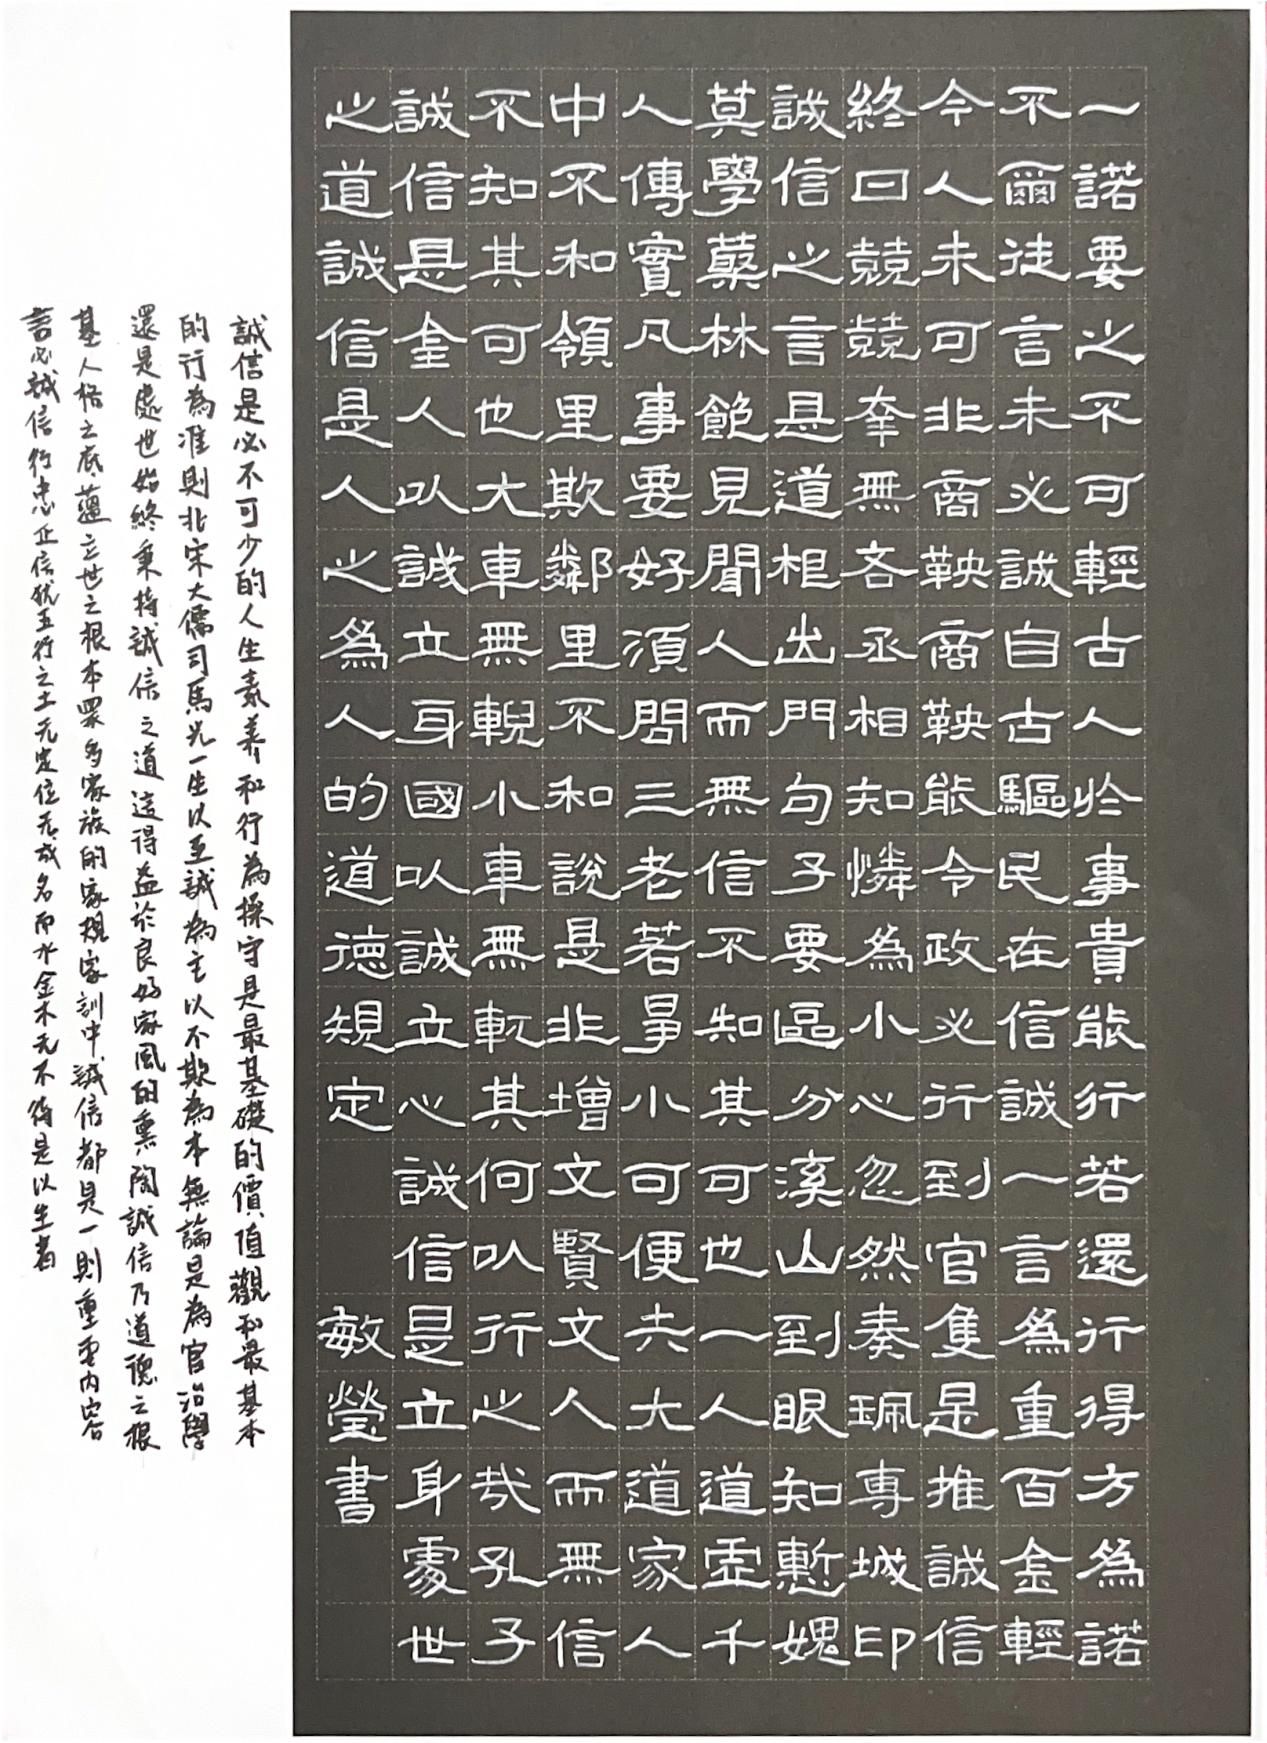 一諾要之不可輕古人於事貴能行若還行得方為諾
不爾徒言未必誠自古驅民在信誠一言為重百金輕
今人未可非商鞅商鞅能令政必行到官隻是推誠信
終日兢兢幸無吝丞相知憐為小心忽然奏珮專城印
誠信之言是道相出門句子要區分溪山到眼知慙愧
莫學藂林飽見聞人而無信不知其可也一人道虛千
人傳實凡事要好須問三老若爭小可便失大道家人
中不和領里欺鄰里不和說是非增文賢文人而無信
不知其可也大車無輗小車無軏其何以行之哉孔子
誠信是金人以誠立身國以誠立心誠信是立身處世
之道誠信是人之為人的道德規定 敏瑩書
誠信是必不可少的人生素養和行為操守是最基礎的價值觀和最基本
的行為准則北宋大儒司馬光一生以至誠為主以不欺為本無論是為官治學
還是處世始終秉持誠信之道這得益於良好家風的熏陶誠信乃道德之根
基人格之底蘊立世之根本眾多家族的家規家訓中誠信都是一則重要內容
言必誠信行忠正信猶五行之土无定位无成名而水金木无不待是以生者